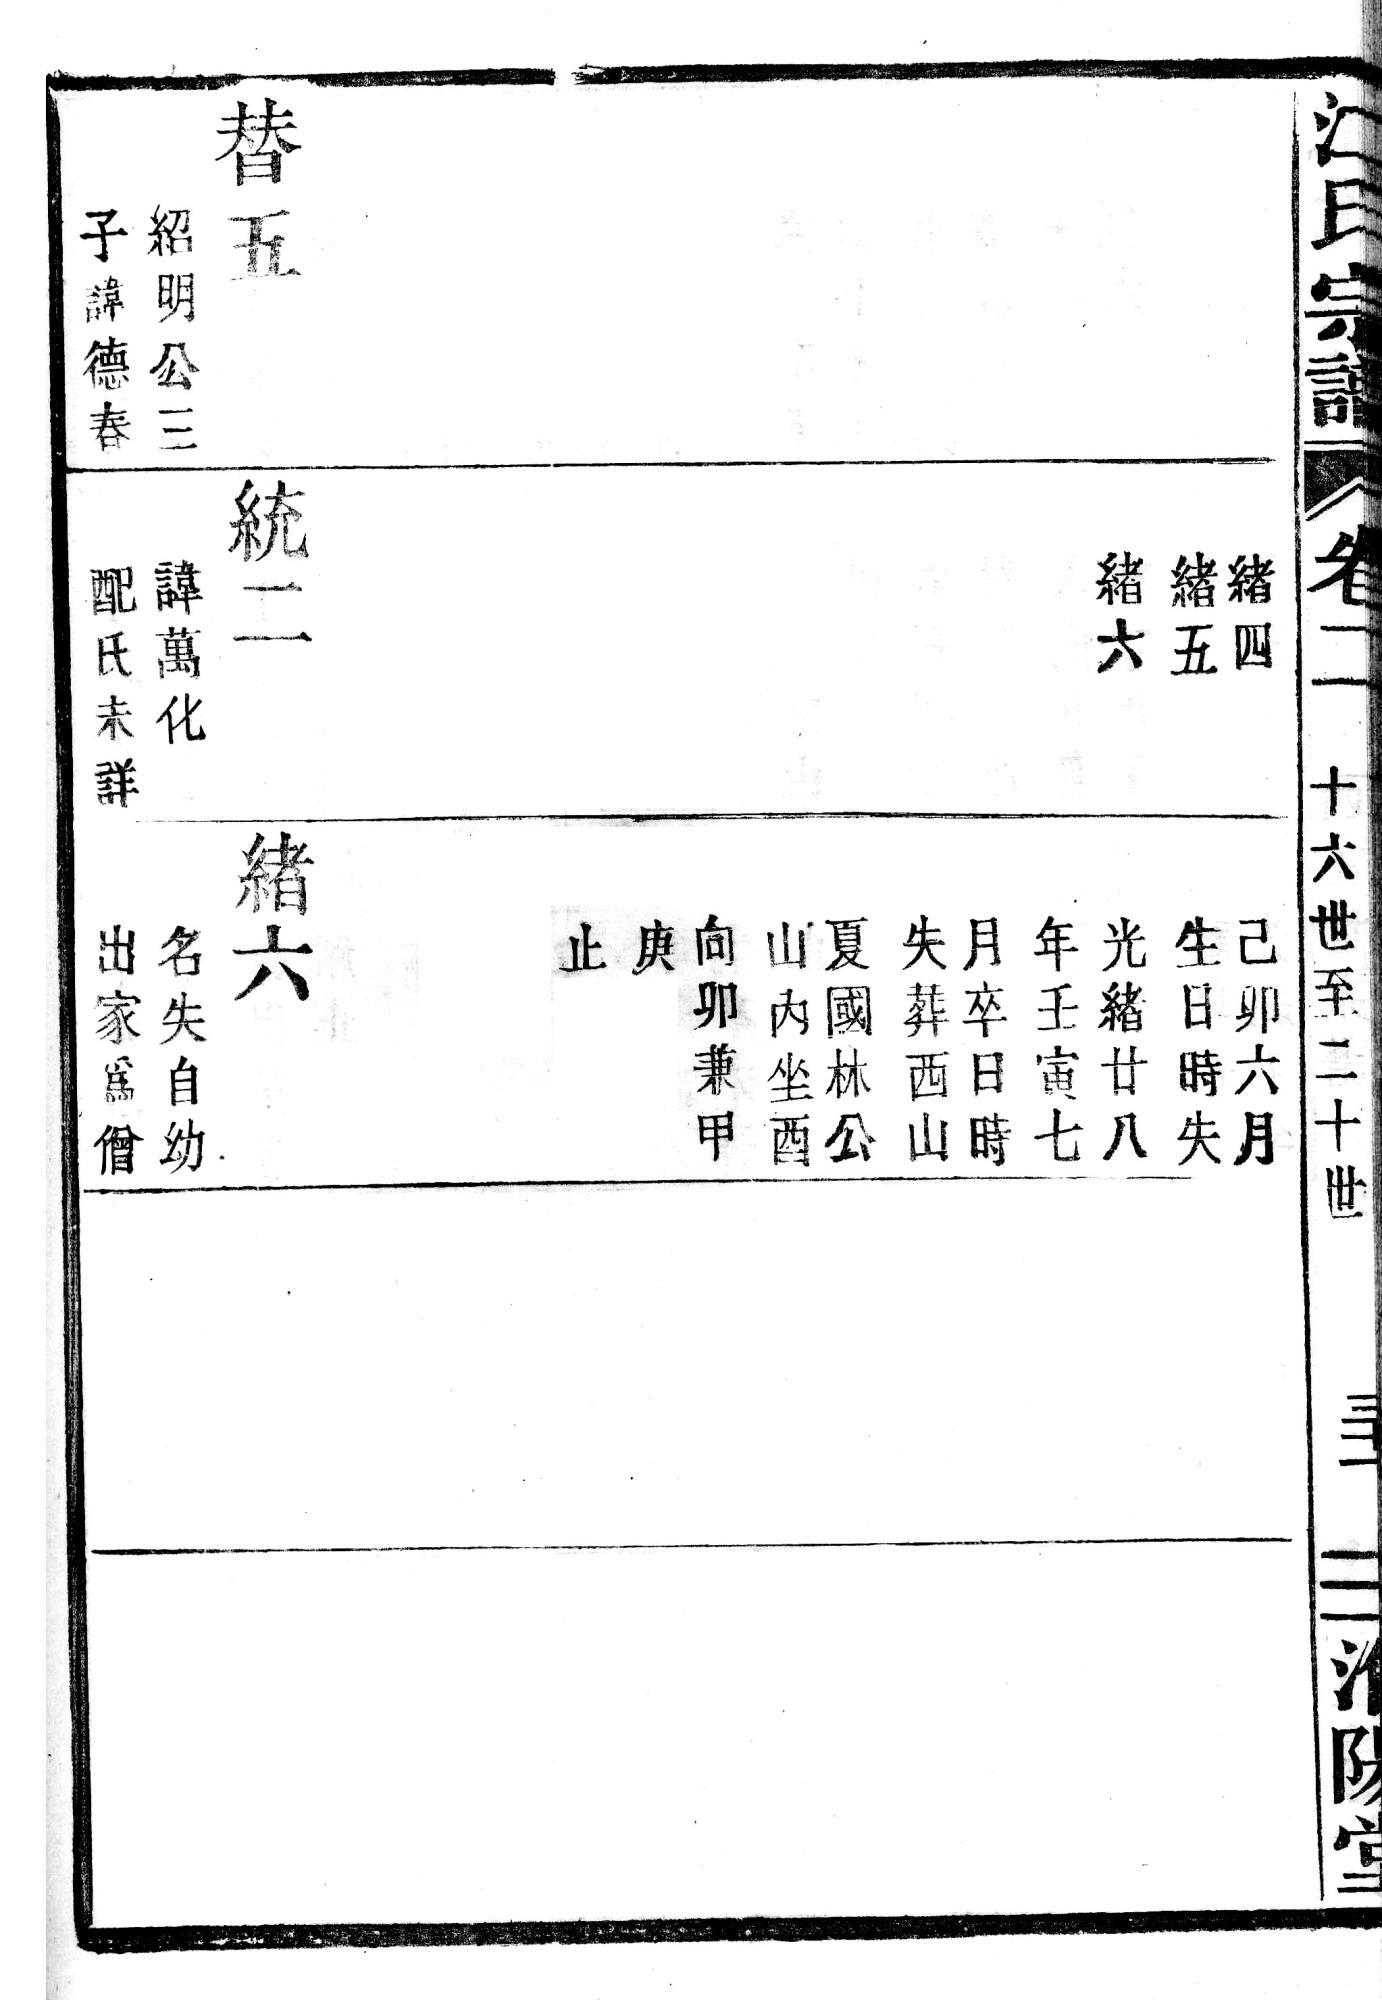 江氏宗譜
卷二
十六世至二十世
三十一
淮陽堂
替五
紹明公三
子諱德春
緒四
緒五
緒六
統二
諱萬化
配氏未詳
己卯六月
生日時失
光緒廿八
年壬寅七
月卒日時
失葬西山
夏國林公
山內坐酉
向卯兼甲
庚
止
緒六
名失自幼
出家爲僧